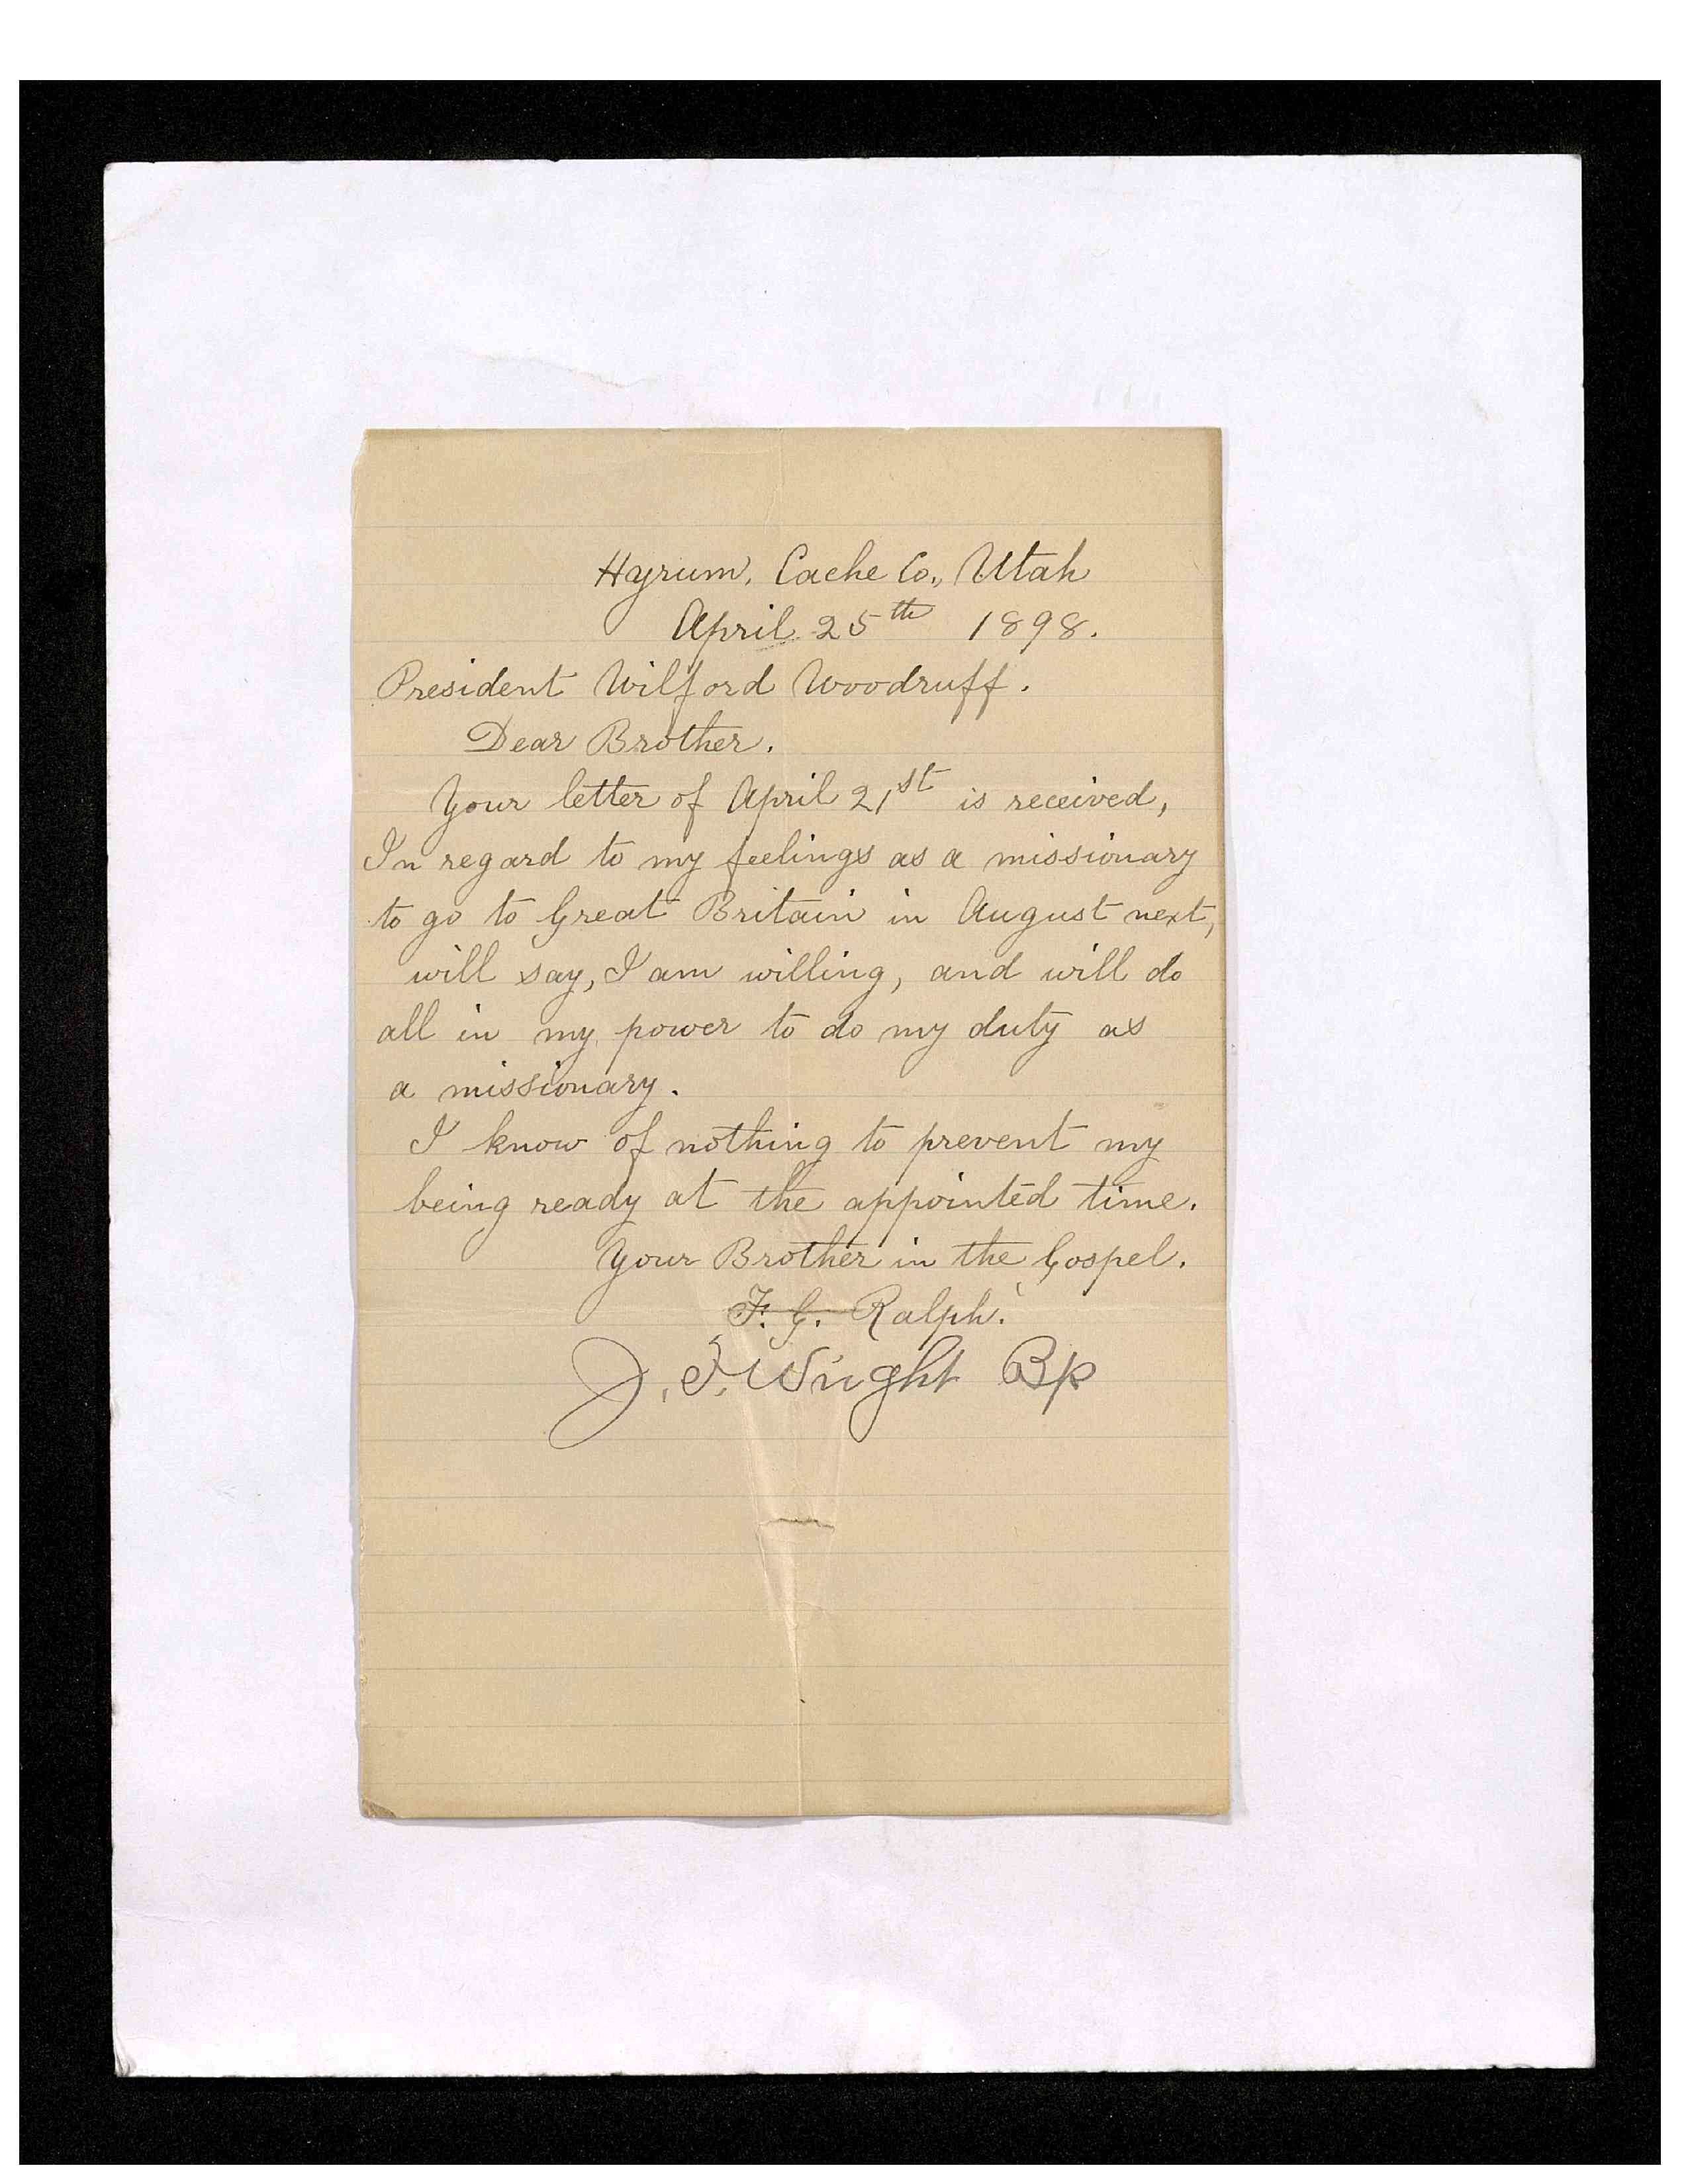 Hyrum, Cache Co., Utah
April 25th 1898.
President Wilford Woodruff.
Dear Brother.
Your letter of April 21st is received,
In regard to my feelings as a missionary
to go to Great Britain in August next,
will say, I am willing, and will do
all in my power to do my duty as
a missionary.
I know of nothing to prevent my
being ready at the appointed time.
Your Brother in the Gospel.
F. G. Ralph.
J. I. Wright Bp